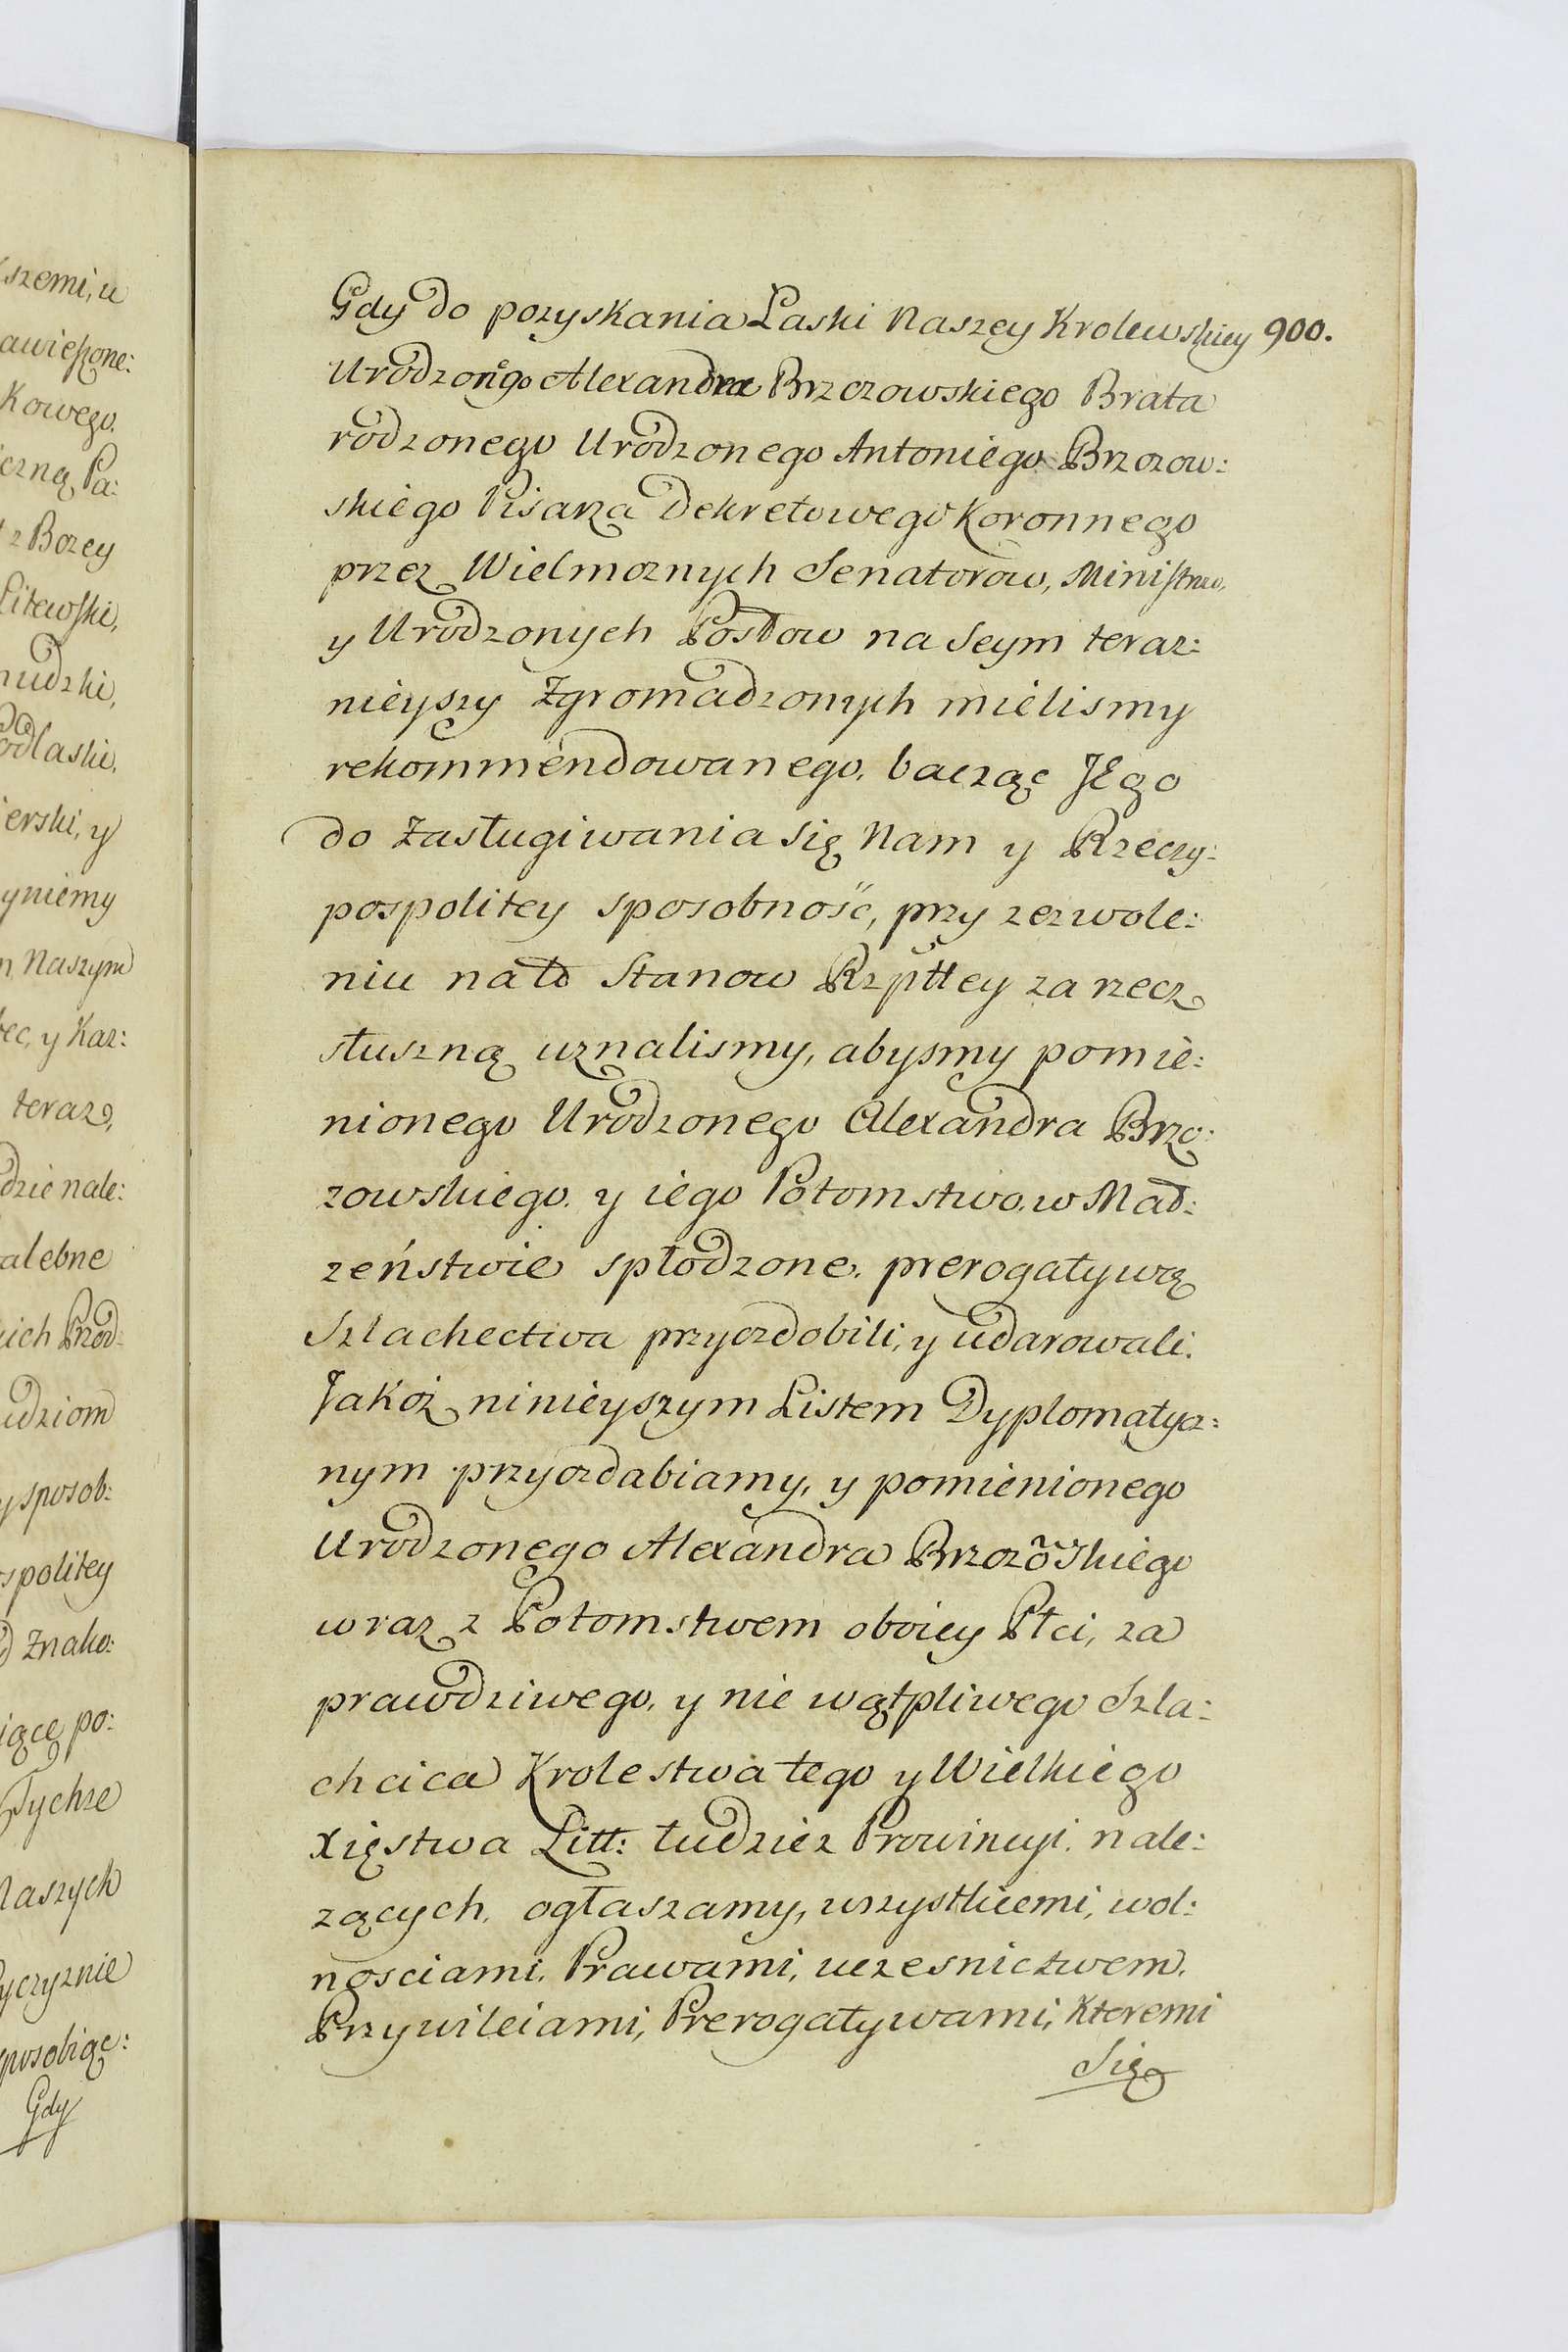 szemi, u
awieszone:
kowego.
czną Pa:
z Bozey
Litewski,
mudzki,
Podlaski.
ierski, y
yniemy
m Naszym
bec, y Kaz:
teraz,
dzie nale:
alebne
ich Przod:
udziom
y sposob:
spolitey
Znako:
iącę po:
Tychze
Naszych
yczyznie
sposobiąc:
Gdy
Gdy do pozyskania Laski Naszey Krolewskiey 900.
Urodzongo Alexandra Brzozowskiego Brata
rodzonego Urodzonego Antoniego Brzozow:
skiego Pisarza Dekretowego Koronnego
przez Wielmoznych Senatorow, Ministrow,
y Urodzonych Posłow na Seym teraz:
nieyszy Zgromadzonych mielismy
rekommendowanego, bacząc Jego
do Zasługiwania się Nam y Rzeczy:
pospolitey sposobność, przy zezwole:
niu na to Stanow Rzpttey za rzecz
słuszną uznalismy, abysmy pomie:
nionego Urodzonego Alexandra Brzo:
zowskiego y iego Potomstwo, w Mał:
zeństwie spłodzone, prerogatywą
Szlachectwa przyozdobili, y udarowali.
Jakoż ninieyszym Listem Dyplomatycz:
nym przyozdabiamy, y pomienionego
Urodzonego Alexandra Brzozõskiego
wraz z Potomstwem oboiey Płci, za
prawdziwego, y nie wątpliwego Szla:
chcica Krolestwa tego y Wielkiego
Xięstwa Litt: tudziez Prowincyi nale:
zących, ogłaszamy, wszystkiemi, wol:
nosciami, Prawami, uczesnictwem,
Przywileiami, Prerogatywami, Ktoremi
Się